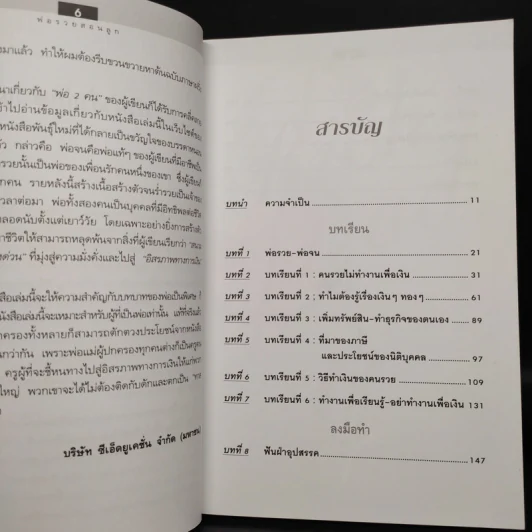 6
พ่อรวยสอนลูก
งมาแล้ว ทำให้ผมต้องรีบขวนขวายหาต้นฉบับภาษาอังก
นาเกี่ยวกับ "พ่อ 2 คน" ของผู้เขียนก็ได้รับการ
ข้าไปอ่านข้อมูลเกี่ยวกับหนังสือเล่มนี้ในเว็บไซต์ของ
หนังสือพันธุ์ใหม่ที่ได้กลายเป็นขวัญใจของบรรดา
ว กล่าวคือ พ่อจนคือพ่อแท้ๆ ของผู้เขียนที่มีอาชีพเป็น
รวยนั้นเป็นพ่อของเพื่อนรักคนหนึ่งของเขา ซึ่งผู้เขียน
ทุกคน รายหลังนี้สร้างเนื้อสร้างตัวจนร่ำรวยเป็นเจ้าของ
เวลาต่อมา พ่อทั้งสองคนเป็นบุคคลที่มีอิทธิพลต่อชีวิต
ตลอดนับตั้งแต่เยาว์วัย โดยเฉพาะอย่างยิ่งการสร้าง
ชีวิตให้สามารถหลุดพ้นจากสิ่งที่ผู้เขียนเรียกว่า
ด่วน" ที่มุ่งสู่ความมั่งคั่งและไปสู่ "อิสรภาพทางการเงิน"
สือเล่มนี้จะให้ความสำคัญกับบทบาทของพ่อเป็นพิเศษ !
นังสือเล่มนี้จะเหมาะสำหรับผู้ที่เป็นพ่อเท่านั้น แท้ที่จริงแล้ว
ครองทั้งหลายก็สามารถตักตวงประโยชน์จากหนังสือ
นกว่ากัน เพราะพ่อแม่ผู้ปกครองทุกคนต่างก็เป็นครู
ครูผู้ที่จะชี้ทางไปสู่อิสรภาพทางการเงินให้แก่พวก
ใหญ่ พวกเขาจะได้ไม่ต้องติดกับดักและตกเป็น "ทาส
บริษัท ซีเอ็ดยูเคชั่น จำกัด (มหาชน)
สารบัญ
บทนำ ความจำเป็น 11
บทเรียน
บทที่ 1 พ่อรวย-พ่อจน 21
บทที่ 2 บทเรียนที่ 1 : คนรวยไม่ทำงานเพื่อเงิน 31
บทที่ 3 บทเรียนที่ 2 : ทำไมต้องรู้เรื่องเงินๆ ทองๆ 61
บทที่ 4 บทเรียนที่ 3 : เพิ่มทรัพย์สิน-ทำธุรกิจของตนเอง 89
บทที่ 5 บทเรียนที่ 4 : ที่มาของภาษี
และประโยชน์ของนิติบุคคล 97
บทที่ 6 บทเรียนที่ 5 : วิธีทำเงินของคนรวย 109
บทที่ 7 บทเรียนที่ 6 : ทำงานเพื่อเรียนรู้-อย่าทำงานเพื่อเงิน 131
ลงมือทำ
บทที่ 8 ฟันฝ่าอุปสรรค 147